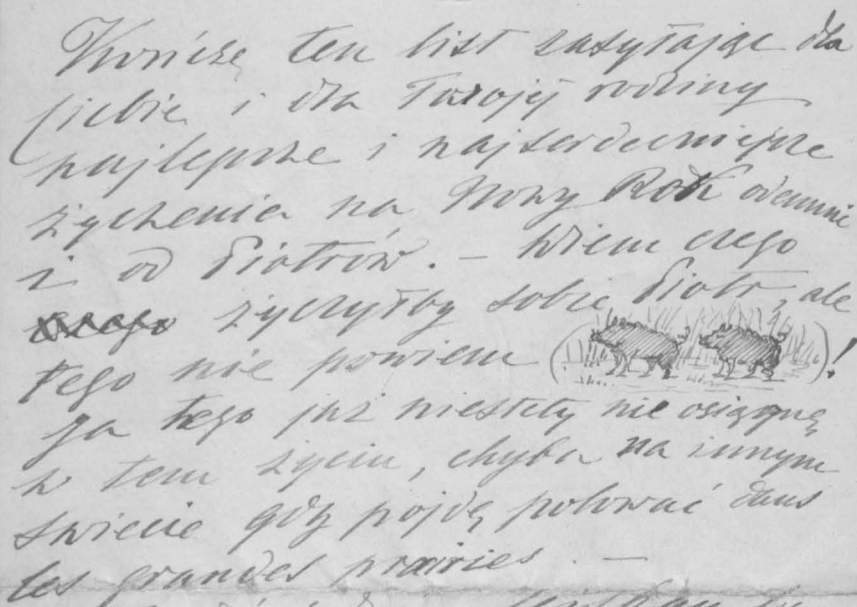 Kończę ten list zasyłając dla
Ciebie i dla Twojej rodziny
najlepsze i najserdeczniejsze
życzenia na Nowy Rok odemnie
i od Piotrów. – Wiem czego
czego życzyłby sobie Piotr, ale
tego nie powiem ( )!
ja tego już niestety nie osiągnę
w tem życiu, chyba na innym
świecie gdy pójdę polować dans
les grandes prairies. —